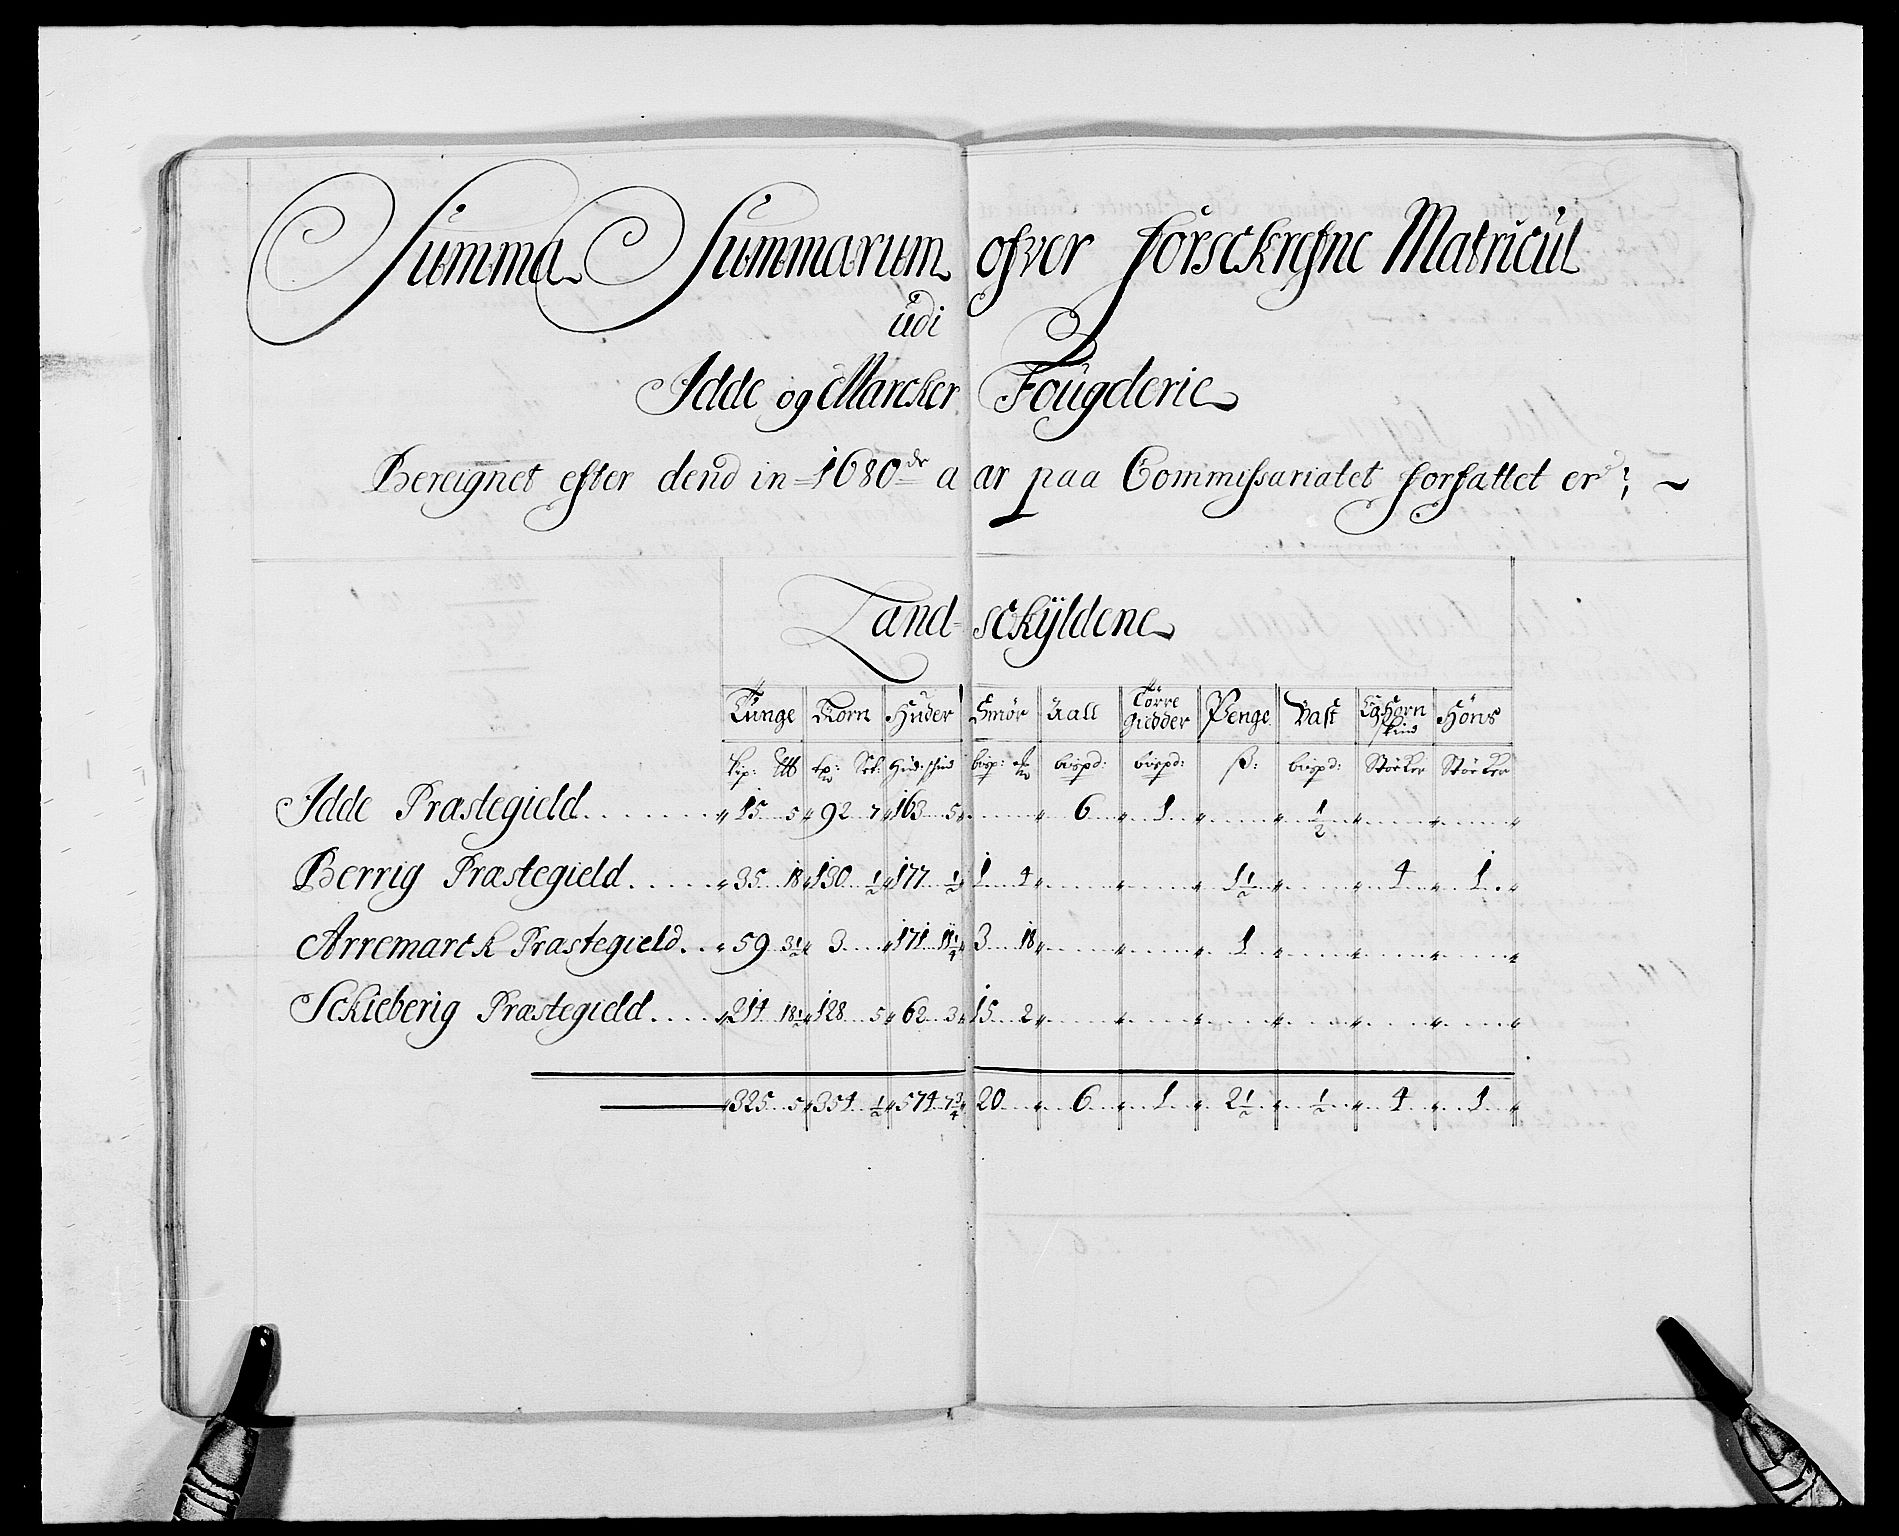 Summa Summarum ofver forsckrefne Matricul
udi
Idde og Marcker Fougderie
Bereignet efter dend in 1680de aar paa Commissariatet forfattet er;
Landsckÿldene
Tunge Korn Huder Smør Aall Tørre giedder Penge Vast Hørns
Lip: tp: Set: Hud: skind bisp: bispd: bispd: ß: bispd: Støcker Støcker
Idde Præstegield 15 5 92 7 163 5 6 1 1/2
Berrig Præstegield 35 18 130 1/2 177 1/2 1 4 1 1/2 4 1
Arremarck Præstegield 59 3 1/2 3 171 11 1/4 3 18 1
Sckieberig Præstegield 214 18 1/2 128 5 62 3 15 2
325 5 354 1/2 574 7 3/4 20 6 1 2 1/2 1/2 4 1